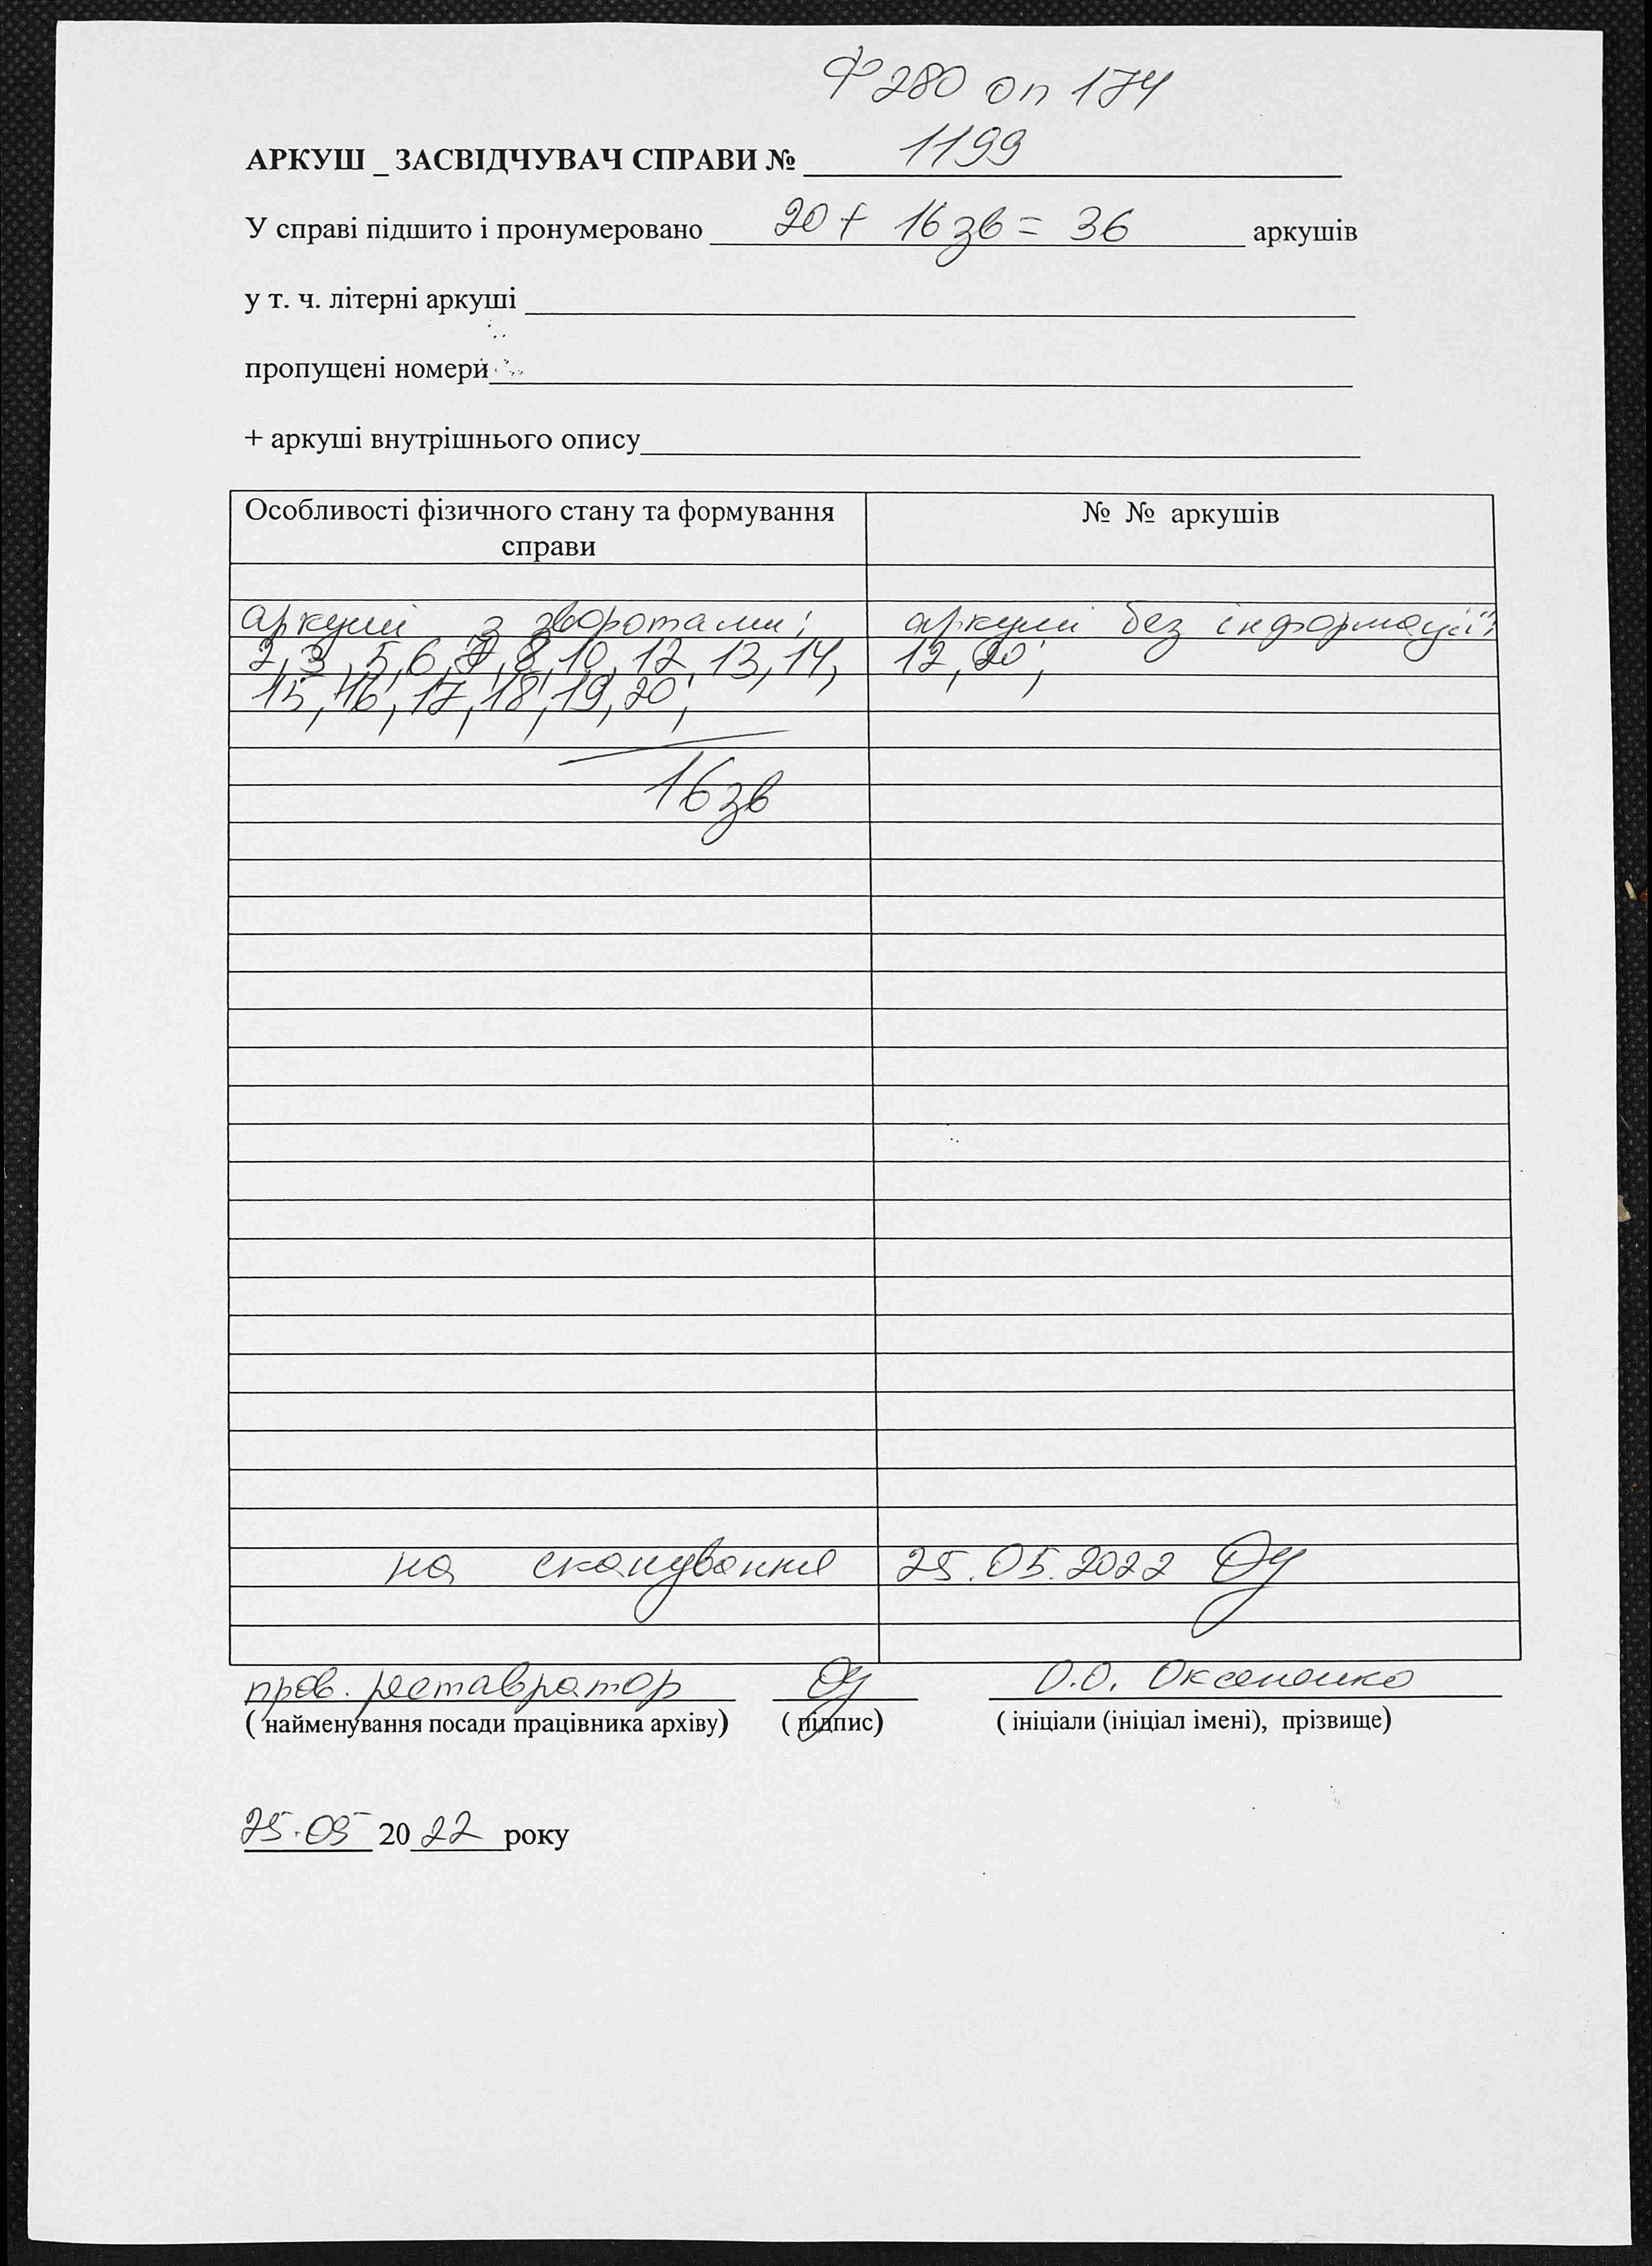 Ф 280 оп 174
АРКУШ _ ЗАСВІДЧУВАЧ СПРАВИ № 1199
У справі підшито і пронумеровано 20 + 16 зв = 36 аркушів
у т. ч. літерні аркуші
пропущені номери
+ аркуші внутрішнього опису
Особливості фізичного стану та формування справи
№ № аркушів
аркуші з зворотами; аркуші без інформації;
2, 3, 5, 6, 7, 8, 10, 12, 13, 14, 12, 20;
15, 16, 17, 18, 19, 20;
16 зв
на сканування 25.05.2022
пров. реставратор О.О. Оксененко
( найменування посади працівника архіву) ( підпис) ( ініціали (ініціал імені), прізвище)
25.05 2022 року